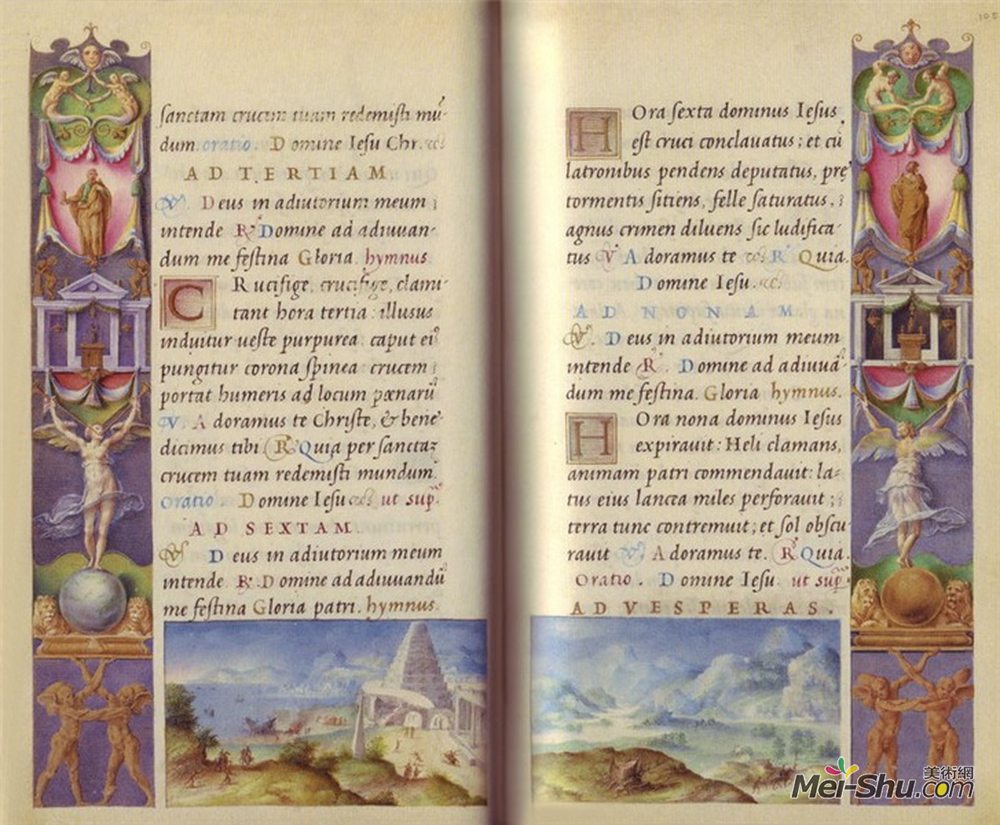 sanctam crucem tuam redemisti mū
dum. oratio. Domine Iesu Chr.
AD TERTIAM
V. Deus in adiutorium meum
intende R. Domine ad adiuuan-
dum me festina Gloria. hymnus.
CRucifige, crucifige, clami
tant hora tertia: illusus
induitur ueste purpurea. caput eī
pungitur corona spinea: crucem
portat humeris ad locum pœnarū
V. Adoramus te Christe, & bene
dicimus tibi R. Quia per sanctaz
crucem tuam redemisti mundum.
Oratio. Domine Iesu ut sup.
AD SEXTAM.
V. Deus in adiutorium meum
intende R. Domine ad adiuuandū
me festina Gloria patri. hymnus.
105
HOra sexta dominus Iesus
est cruci conclauatus: et cū
latronibus pendens deputatus, præ
tormentis sitiens, felle saturatus,
agnus crimen diluens sic ludifica-
tus V. Adoramus te R. Quia.
Domine Iesu.
AD NONAM
V. Deus in adiutorium meum
intende R. Domine ad adiuuā-
dum me festina. Gloria hymnus.
HOra nona dominus Iesus
expirauit: Heli clamans,
animam patri commendauit: la-
tus eius lancea miles perforauit;
terra tunc contremuit; et sol obscu
rauit V. Adoramus te. R. Quia.
Oratio. Domine Iesu. ut sup.
AD VESPERAS.
美術網
Mei-Shu.com